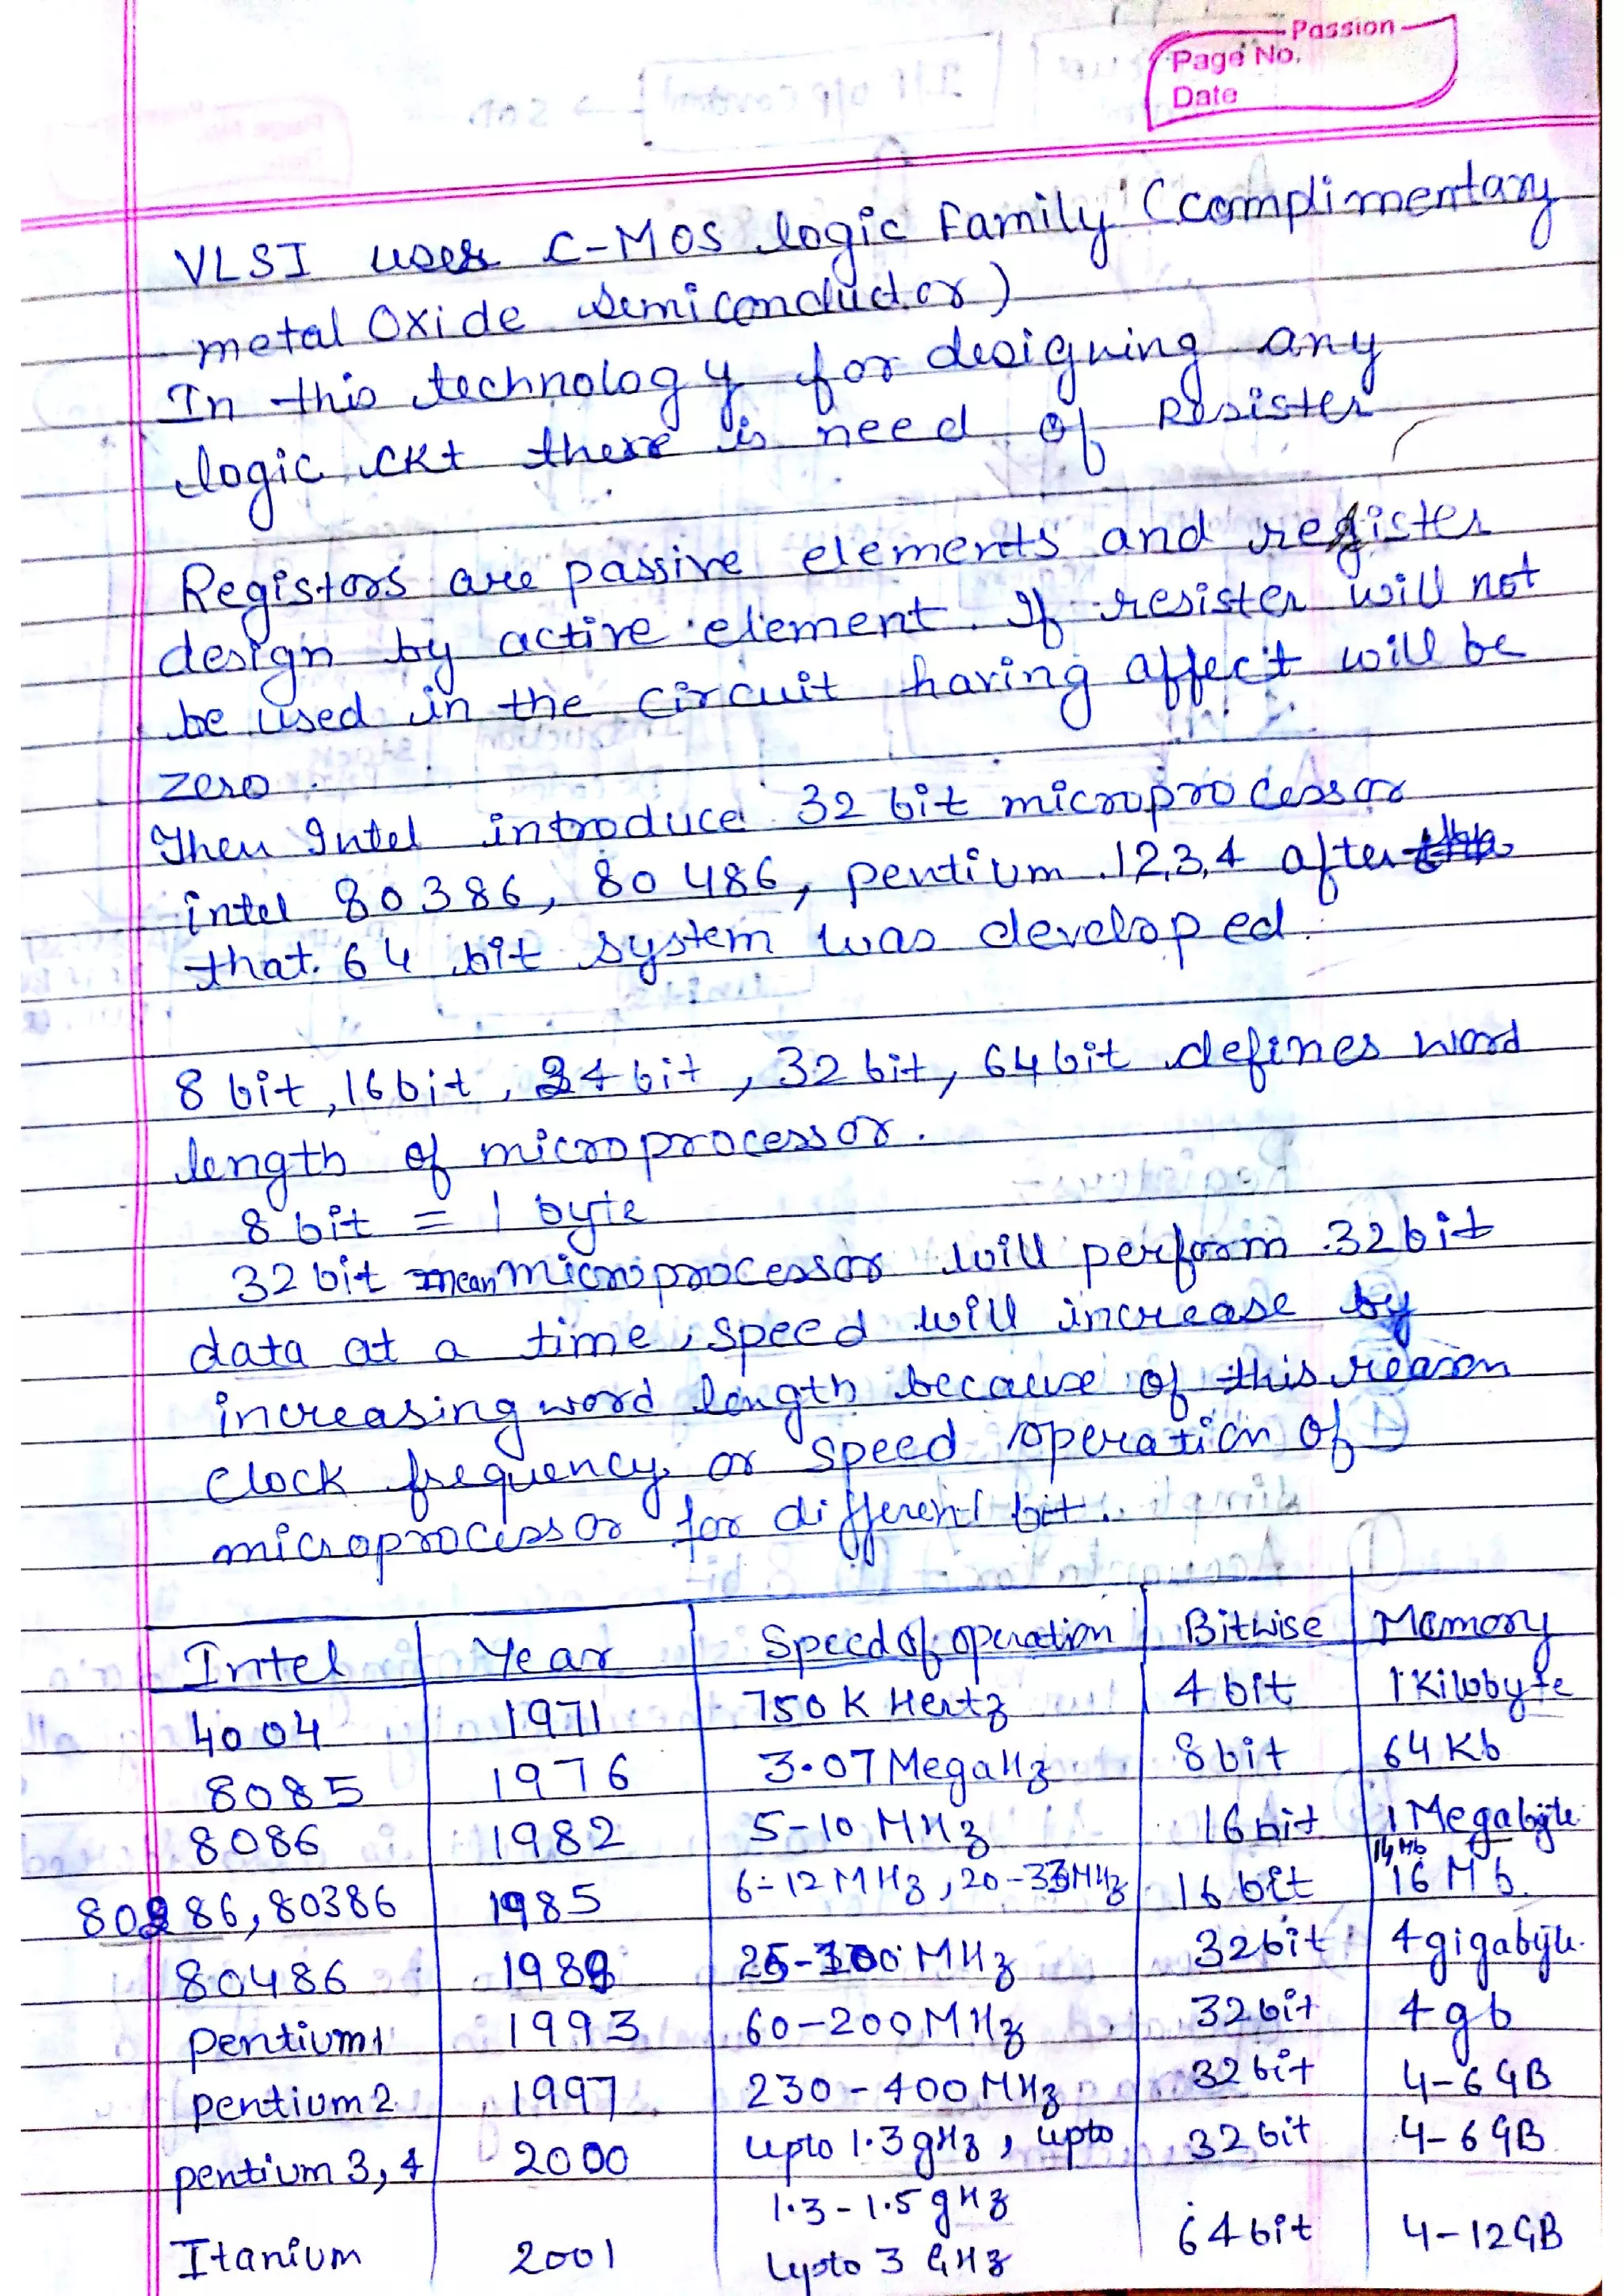 Passion
Page No.
Date
VLSI uses C-MOS logic Family (complimentary
metal Oxide semiconductor)
In this technology for designing any
logic ckt there is need of Resister
Registors are passive elements and register
design by active element. If resister will not
be used in the circuit having affect will be
zero.
Then Intel introduce 32 bit microprocessor
intel 80386, 80486, pentium 1,2,3,4 after
that 64 bit system was developed.
8 bit, 16 bit, 24 bit, 32 bit, 64 bit defines word
length of microprocessor.
8 bit = 1 byte
32 bit mean microprocessor will perform 32 bit
data at a time, speed will increase by
increasing word length because of this reason
clock frequency or speed operation of
microprocessor for different bit.
Intel Year Speed of operation Bitwise Memory
4004 1971 750 K Hertz 4 bit 1 Kilobyte
8085 1976 3.07 MegaHz 8 bit 64 Kb
8086 1982 5-10 MHz 16 bit 1 Megabyte
80286, 80386 1985 6-12 MHz, 20-33 MHz 16 bit 16 Mb
80486 1989 25-100 MHz 32 bit 4 gigabyte
pentium 1 1993 60-200 MHz 32 bit 4 gb
pentium 2 1997 230-400 MHz 32 bit 4-6 GB
pentium 3, 4 2000 upto 1.3 gHz, upto 32 bit 4-6 GB
1.3-1.5 gHz
Itanium 2001 upto 3 GHz 64 bit 4-12 GB